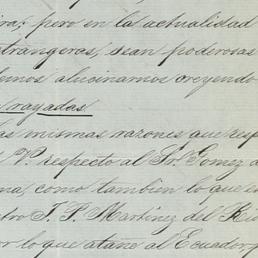 ra; pero en la actualidad
trangeras, sean poderosas
lemos alucinarnos creyendo
rayadas
as mismas razones que resp
V. respecto al Sr. Gomez d
na, como tambien lo que e
tro J. P. Martinez del Rio
or lo que atañe al Ecuador, p